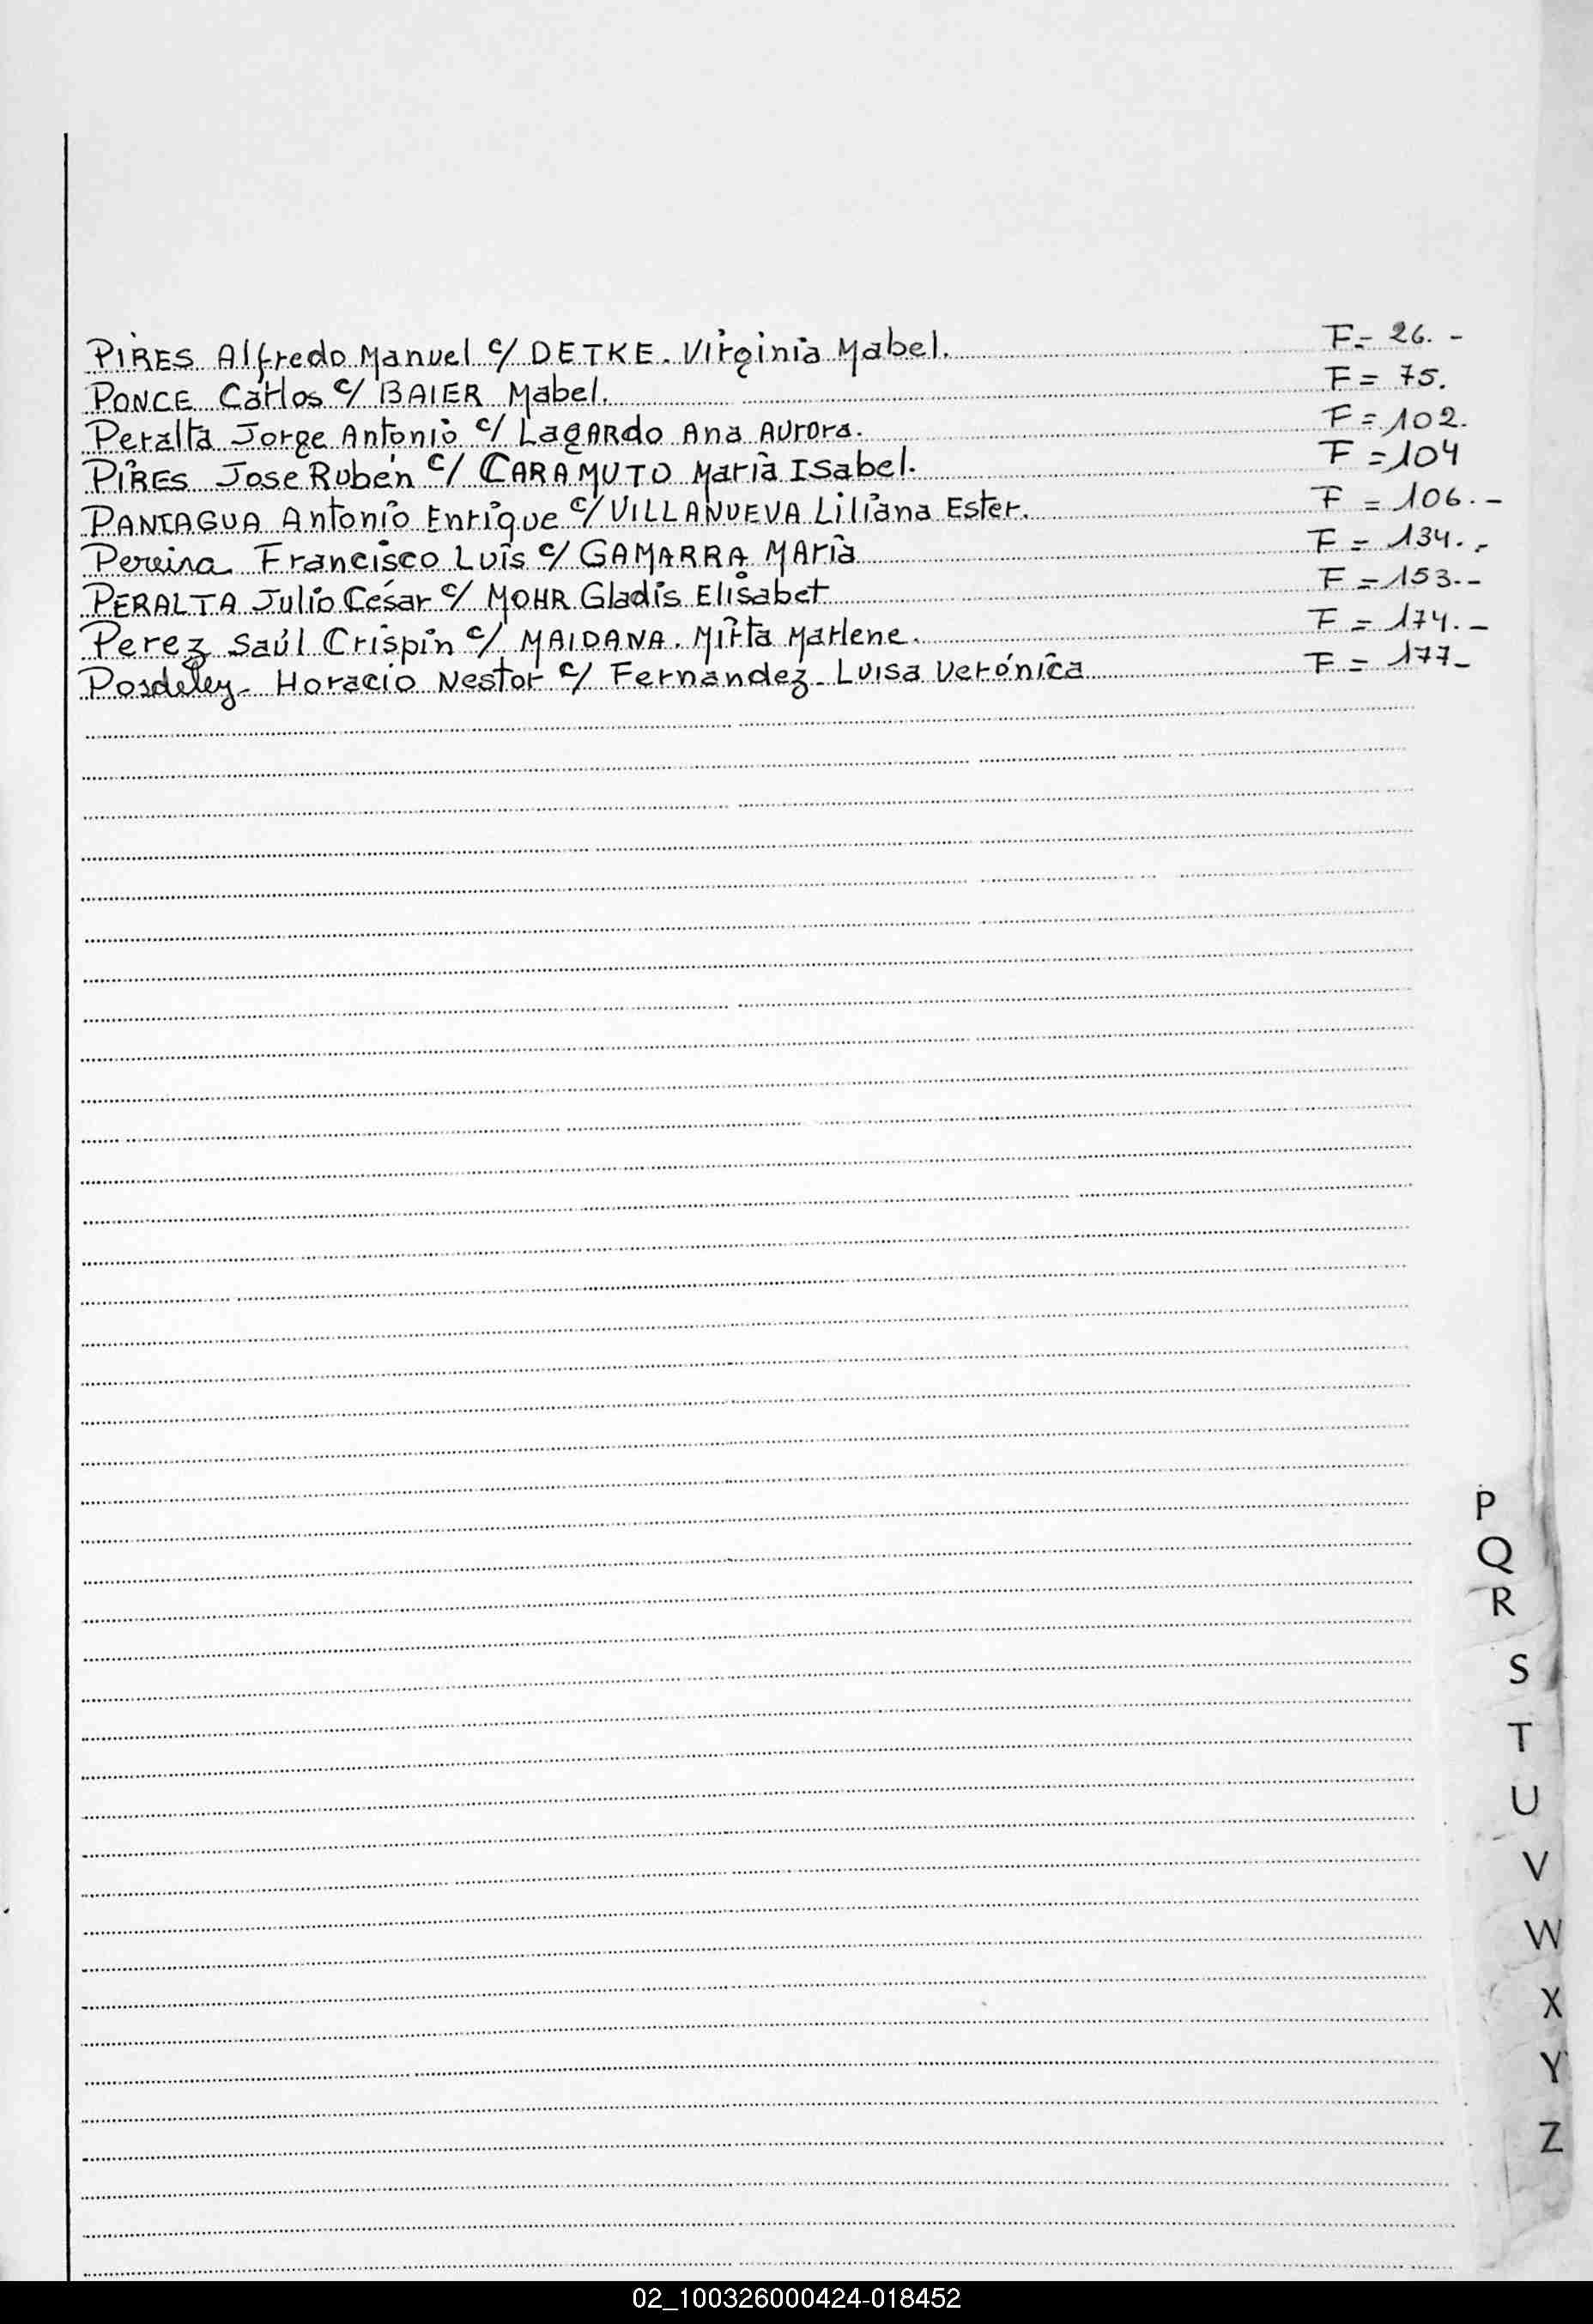 PIRES Alfredo Manuel c/ DETKE. Virginia Mabel. F.- 26.-
PONCE Carlos c/ BAIER Mabel. F= 75.
Peralta Jorge Antonio c/ LagARdo Ana Aurora. F=102.
PIRES Jose Rubén c/ CARAMUTO María Isabel. F=104
PANIAGUA Antonio Enrique c/ VILLANUEVA Liliana Ester. F=106.-
Pereira Francisco Luis c/ GAMARRA MAría F=134.-
PERALTA Julio César c/ MOHR Gladis Elisabet F=153.-
Perez Saúl Crispin c/ MAIDANA. Mirta Marlene. F=174.-
Posdeley- Horacio Nestor c/ Fernandez- Luisa Verónica F=177-
P
Q
R
S
T
U
V
W
X
Y
Z
02_100326000424-018452